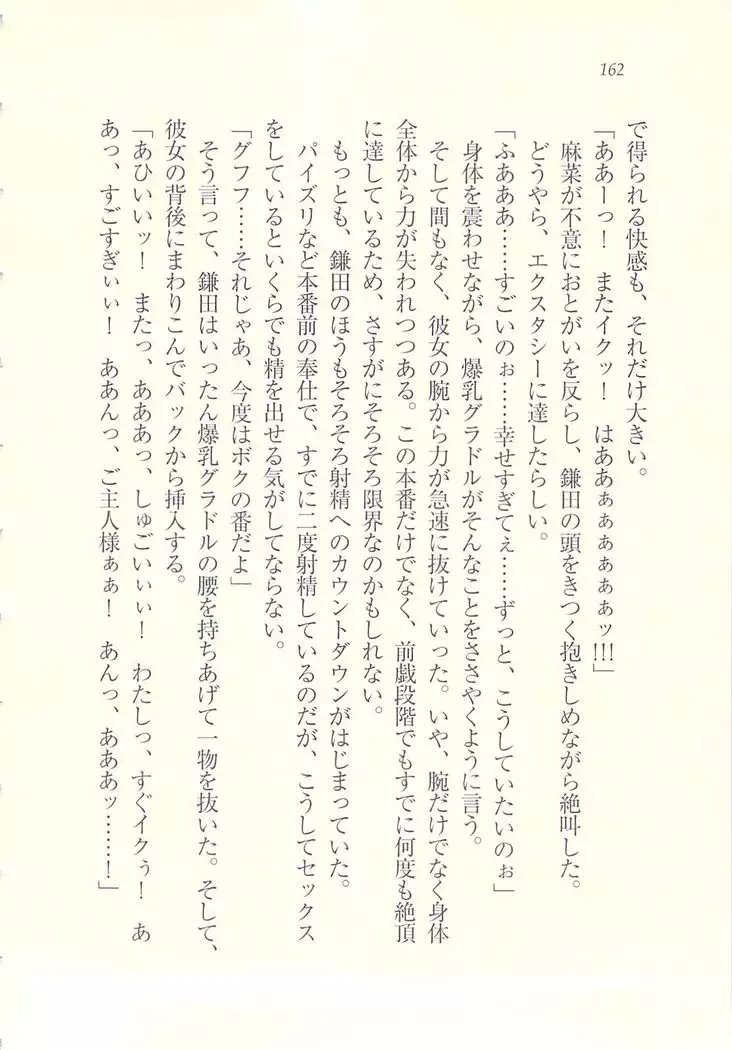 162
で得られる快感も、それだけ大きい。
「ああーっ！　またイクッ！　はああぁぁぁぁぁぁッ!!!」
麻菜が不意におとがいを反らし、鎌田の頭をきつく抱きしめながら絶叫した。
どうやら、エクスタシーに達したらしい。
「ふあああ……すごいのぉ……幸せすぎてぇ……ずっと、こうしていたいのぉ」
身体を震わせながら、爆乳グラドルがそんなことをささやくように言う。
そして間もなく、彼女の腕から力が急速に抜けていった。いや、腕だけでなく身体
全体から力が失われつつある。この本番だけでなく、前戯段階でもすでに何度も絶頂
に達しているため、さすがにそろそろ限界なのかもしれない。
もっとも、鎌田のほうもそろそろ射精へのカウントダウンがはじまっていた。
パイズリなど本番前の奉仕で、すでに二度射精しているのだが、こうしてセックス
をしているといくらでも精を出せる気がしてならない。
「グフフ……それじゃあ、今度はボクの番だよ」
そう言って、鎌田はいったん爆乳グラドルの腰を持ちあげて一物を抜いた。そして、
彼女の背後にまわりこんでバックから挿入する。
「あひいいッ！　またっ、あああっ、しゅごいぃぃ！　わたしっ、すぐイクぅ！　あ
あっ、すごすぎぃぃ！　ああんっ、ご主人様ぁぁ！　あんっ、あああッ……！」